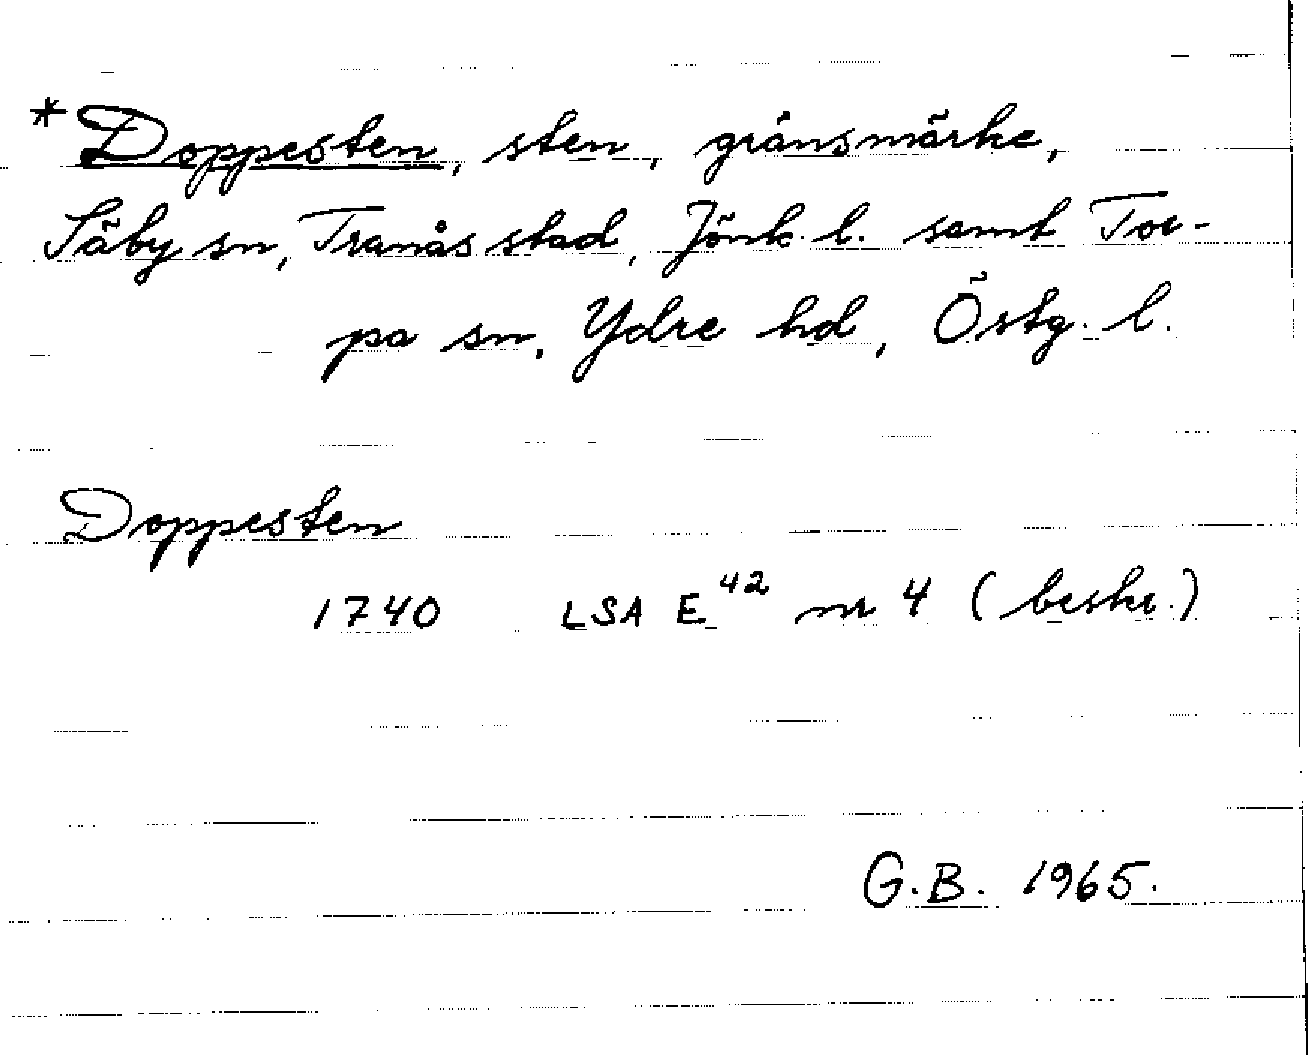 *Doppesten, sten, gränsmärke,
Säby sn, Tranås stad, Jönk. l. samt Tor-
pa sn, Ydre hd, Östg. l.
Doppesten
1740 LSA E⁴² nr 4 (beskr.)
G.B. 1965.